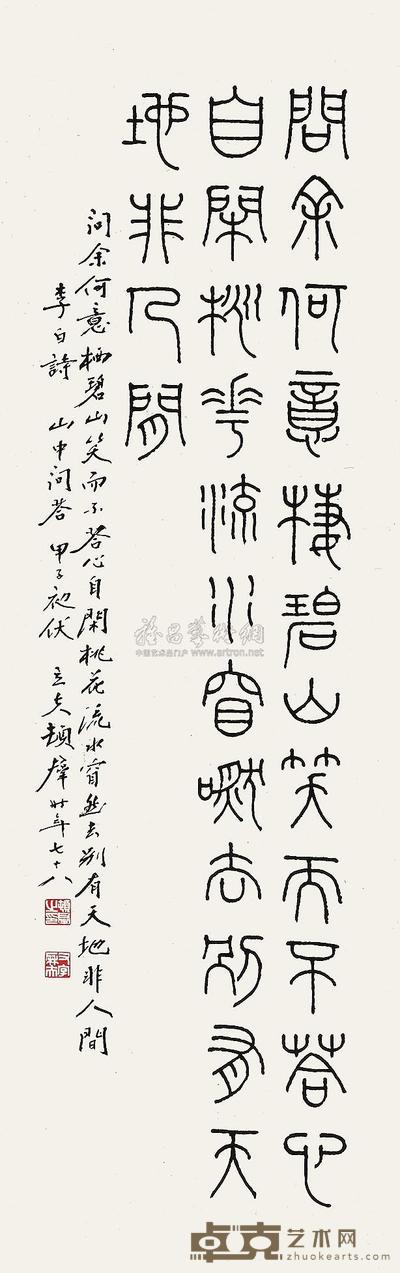 問余何意棲碧山笑而不荅心
自閑桃花流水窅然去別有天
地非人間
问余何意栖碧山笑而不荅心自閑桃花流水窅然去别有天地非人間
李白詩 山中问荅 甲子初伏 年七十八
雅昌藝術網
中国艺术品门户 www.artron.net
卓克艺术网
zhuokearts.com